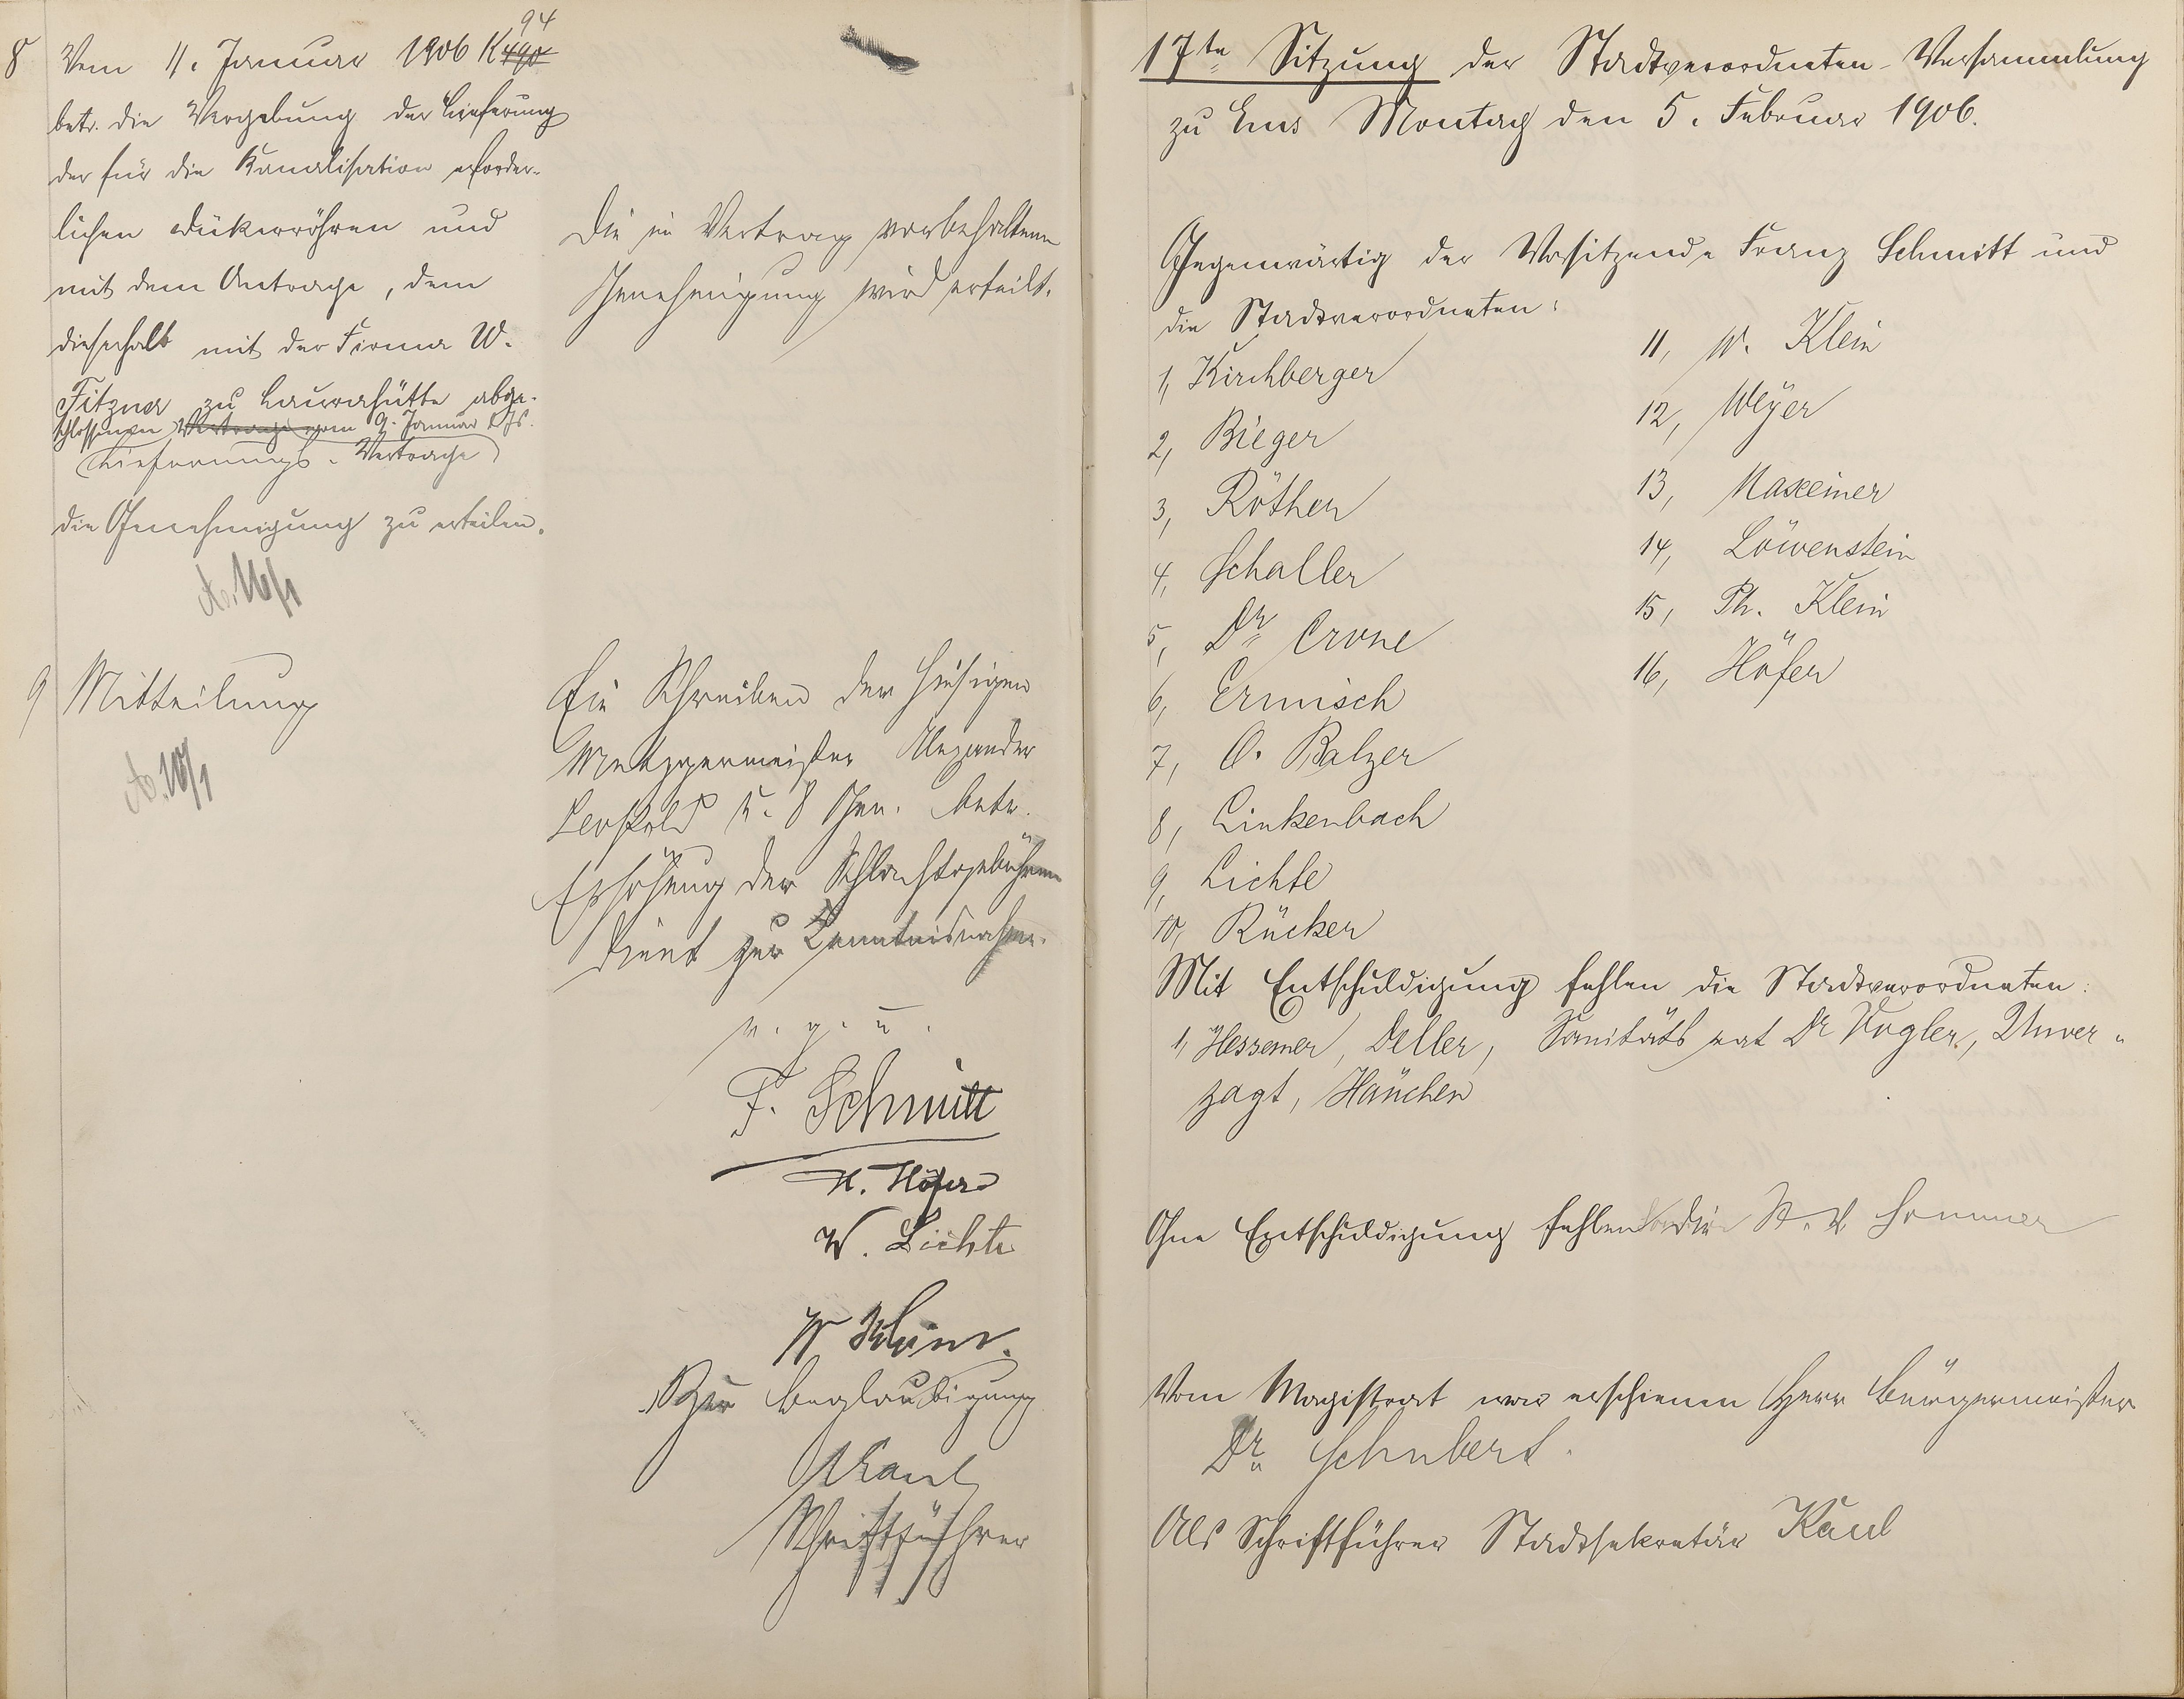 94
8 Vom 11. Januar 1906 K 490
betr. die Vergebung der Lieferung
der für die Kanalisation erforder-
lichen Dükerröhren und
mit dem Antrage, dem
dieserhalb mit der Firma W.
Fitzner zu Laurahütte abge-
schlossenen Vertrage vom 9. Januar d. Js.
Lieferungs-Vertrage
die Genehmigung zu erteilen.
A. 16/1
Die im Vertrag vorbehaltene
Genehmigung wird erteilt.
9 Mitteilung
A. 10/1
Ein Schreiben der hiesigen
Metzgermeister Alexander
Leopold u. 8 Gen. betr.
Erhöhung der Schlachtgebühren
dient zur Kenntnisnahme.
v. g. u.
F. Schmitt
H. Höfer
W. Lichte
W Klein.
Zur Beglaubigung
Kaul
Schriftführer
17te Sitzung der Stadtverordneten-Versammlung
zu Ems Montag den 5. Februar 1906.
Gegenwärtig der Vorsitzende Franz Schmitt und
die Stadtverordneten:
1, Kirchberger
2, Bieger
3, Röther
4, Schaller
5, Dr. Crone
6, Ermisch
7, O. Balzer
8, Linkenbach
9, Lichte
10, Rücker
11, W. Klein
12, Weyer
13, Maxeiner
14, Löwenstein
15, Ph. Klein
16, Höfer
Mit Entschuldigung fehlen die Stadtverordneten:
1, Hessemer, Deller, Sanitätsrat Dr Vogler, Unver-
zagt, Häuchen
Ohne Entschuldigung fehlen die St. V. Sommer
Vom Magistrat war erschienen Herr Bürgermeister
Dr. Schubert.
Als Schriftführer Stadtsekretär Kaul